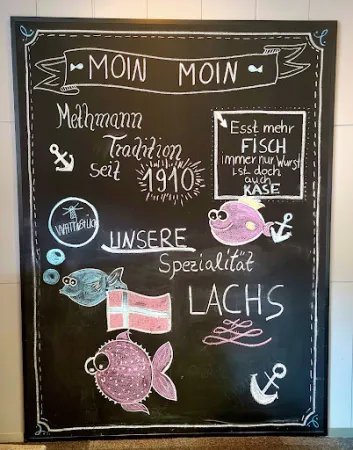 MOIN MOIN
Methmann
Tradition
seit
1910
Esst mehr
FISCH
immer nur Wurst
ist doch
auch
KÄSE
UNSERE
Spezialität
LACHS